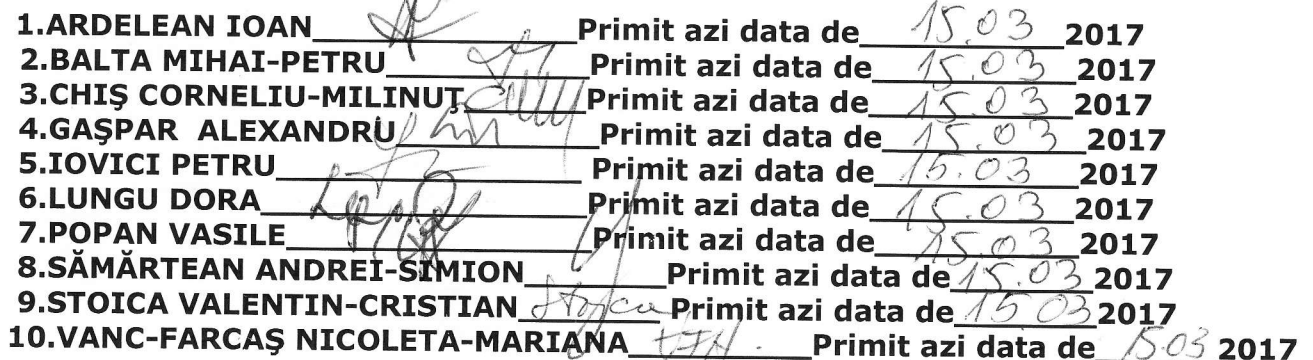 1.ARDELEAN IOAN____Primit azi data de 15.03 2017
2.BALTA MIHAI-PETRU____Primit azi data de 15.03 2017
3.CHIŞ CORNELIU-MILINUŢ____Primit azi data de 15.03 2017
4.GAŞPAR ALEXANDRU____Primit azi data de 15.03 2017
5.IOVICI PETRU____Primit azi data de 15.03 2017
6.LUNGU DORA____Primit azi data de 15.03 2017
7.POPAN VASILE____Primit azi data de 15.03 2017
8.SĂMĂRTEAN ANDREI-SIMION____Primit azi data de 15.03 2017
9.STOICA VALENTIN-CRISTIAN Stoica Primit azi data de 15 03 2017
10.VANC-FARCAŞ NICOLETA-MARIANA____Primit azi data de 15.03 2017